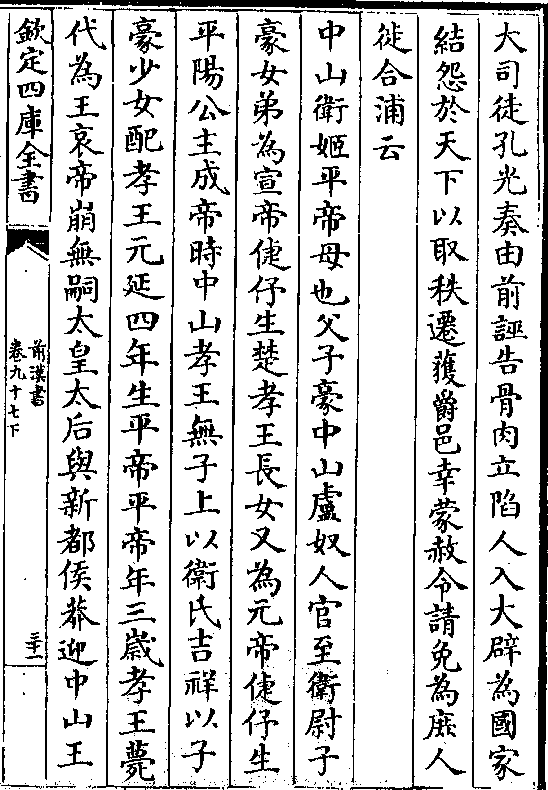 大司徒孔光奏由前誣告骨肉立陷人入大辟為國家
結怨於天下以取秩遷獲爵邑幸蒙赦令請免為庶人
徙合浦云
中山衛姬平帝母也父子豪中山盧奴人官至衛尉子
豪女弟為宣帝倢伃生楚孝王長女又為元帝倢伃生
平陽公主成帝時中山孝王無子上以衛氏吉祥以子
豪少女配孝王元延四年生平帝平帝年三歲孝王薨
代為王哀帝崩無嗣太皇太后與新都侯莽迎中山王
欽定四庫全書
前漢書
卷九十七下
三十一